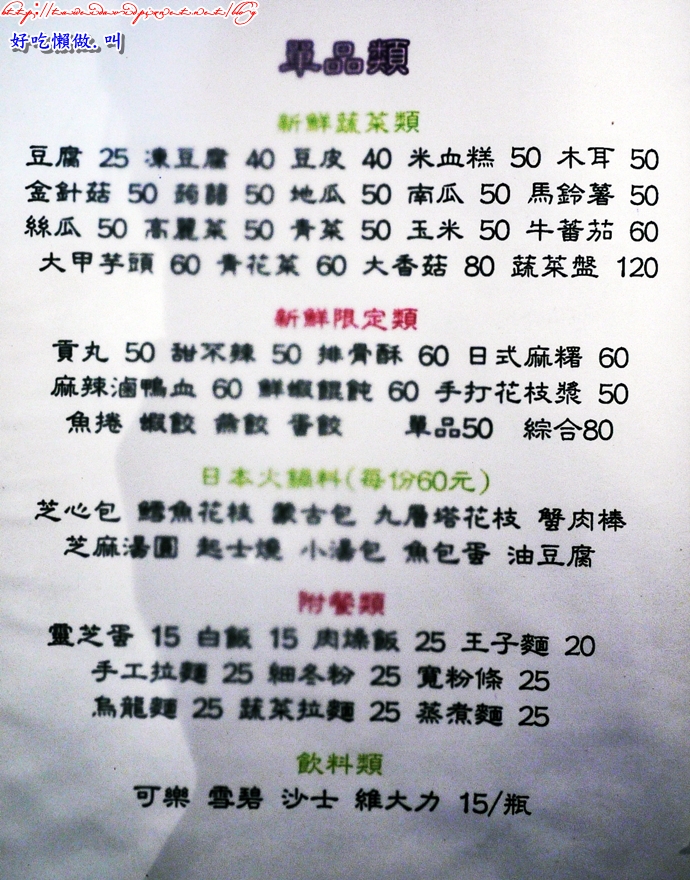 好吃懶做.叫
單品類
新鮮蔬菜類
豆腐 25 凍豆腐 40 豆皮 40 米血糕 50 木耳 50
金針菇 50 蒟蒻 50 地瓜 50 南瓜 50 馬鈴薯 50
絲瓜 50 高麗菜 50 青菜 50 玉米 50 牛蕃茄 60
大甲芋頭 60 青花菜 60 大香菇 80 蔬菜盤 120
新鮮限定類
貢丸 50 甜不辣 50 排骨酥 60 日式麻糬 60
麻辣滷鴨血 60 鮮蝦餛飩 60 手打花枝漿 50
魚捲 蝦餃 燕餃 蛋餃 單品50 綜合80
日本火鍋料(每份60元)
芝心包 鱈魚花枝 蒙古包 九層塔花枝 蟹肉棒
芝麻湯圓 起士燒 小湯包 魚包蛋 油豆腐
附餐類
靈芝蛋 15 白飯 15 肉燥飯 25 王子麵 20
手工拉麵 25 細冬粉 25 寬粉條 25
烏龍麵 25 蔬菜拉麵 25 蒸煮麵 25
飲料類
可樂 雪碧 沙士 維大力 15/瓶